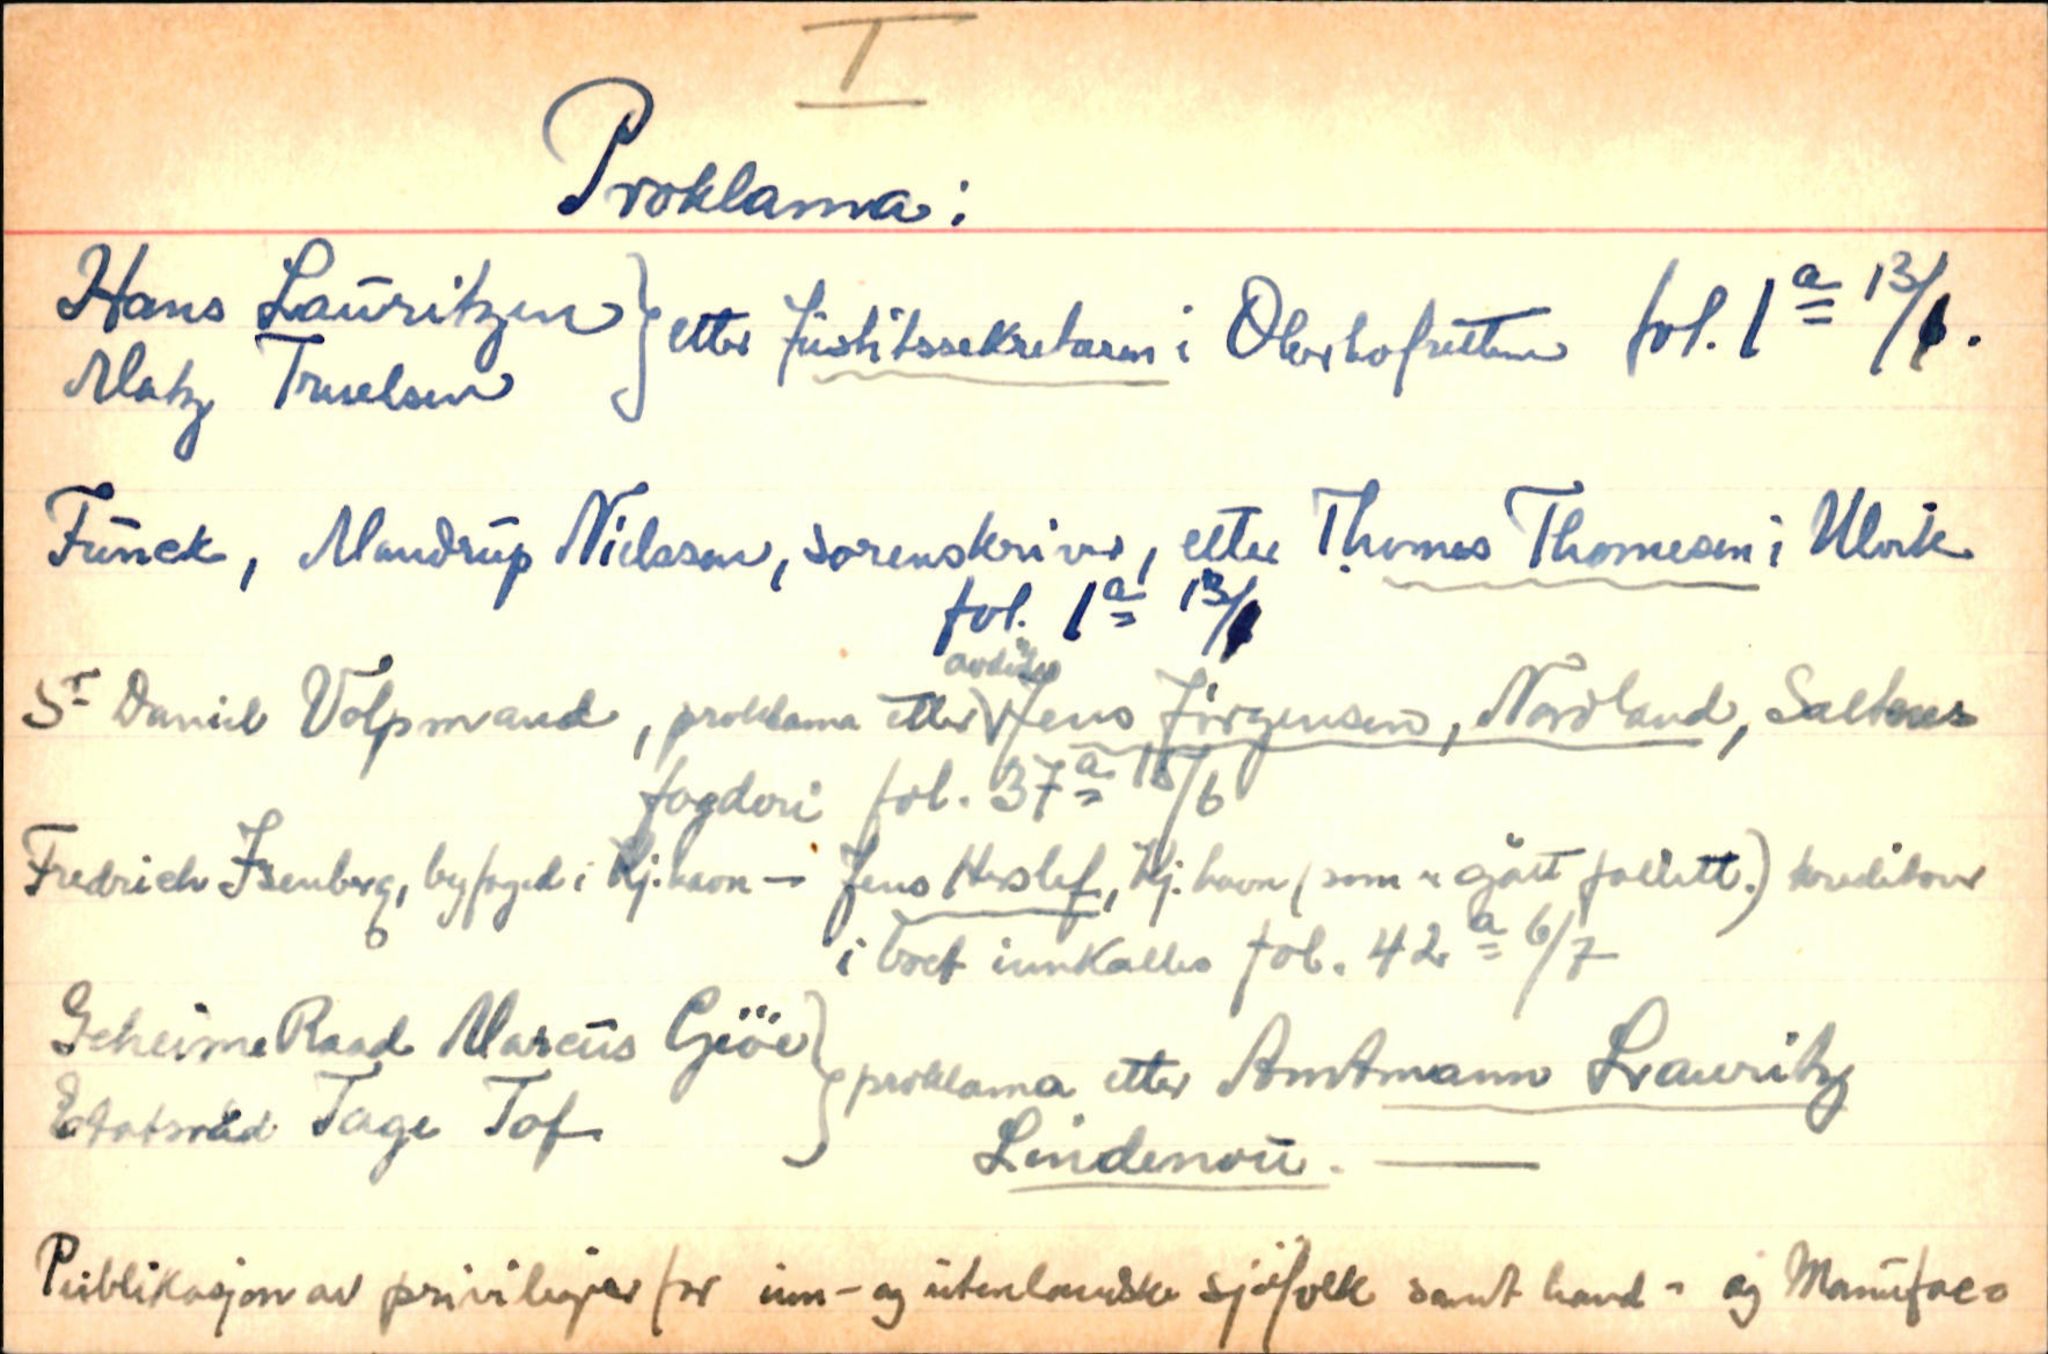 I
Proklama:
Hans Lauritzen } etter Justitssekretæren i Oberhofretten fol. 1a 13/1.
Matz Truelsen
Funck, Mandrup Nielssen, sorenskriver, etter Thomes Thomesen i Ulvik
fol. 1a 13/1
avdøde
Sr Daniel Volpmand, proklama etter Jens Jörgensen, Nordland, Saltens
fogderi fol. 37a 15/6
Fredrich Isenberg, byfoged i Kj.havn - Jens Herslef, Kj.havn (som er gått fallitt.) kreditorer
i boet innkalles fol. 42a 6/7
Geheime Raad Marcus Giöe } proklama etter Amtmann Lauritz
Etatsråd Tage Tof
Lindenou. —
Publikasjon av privilegier for inn- og utenlandske sjöfolk samt hand- og Manufac-